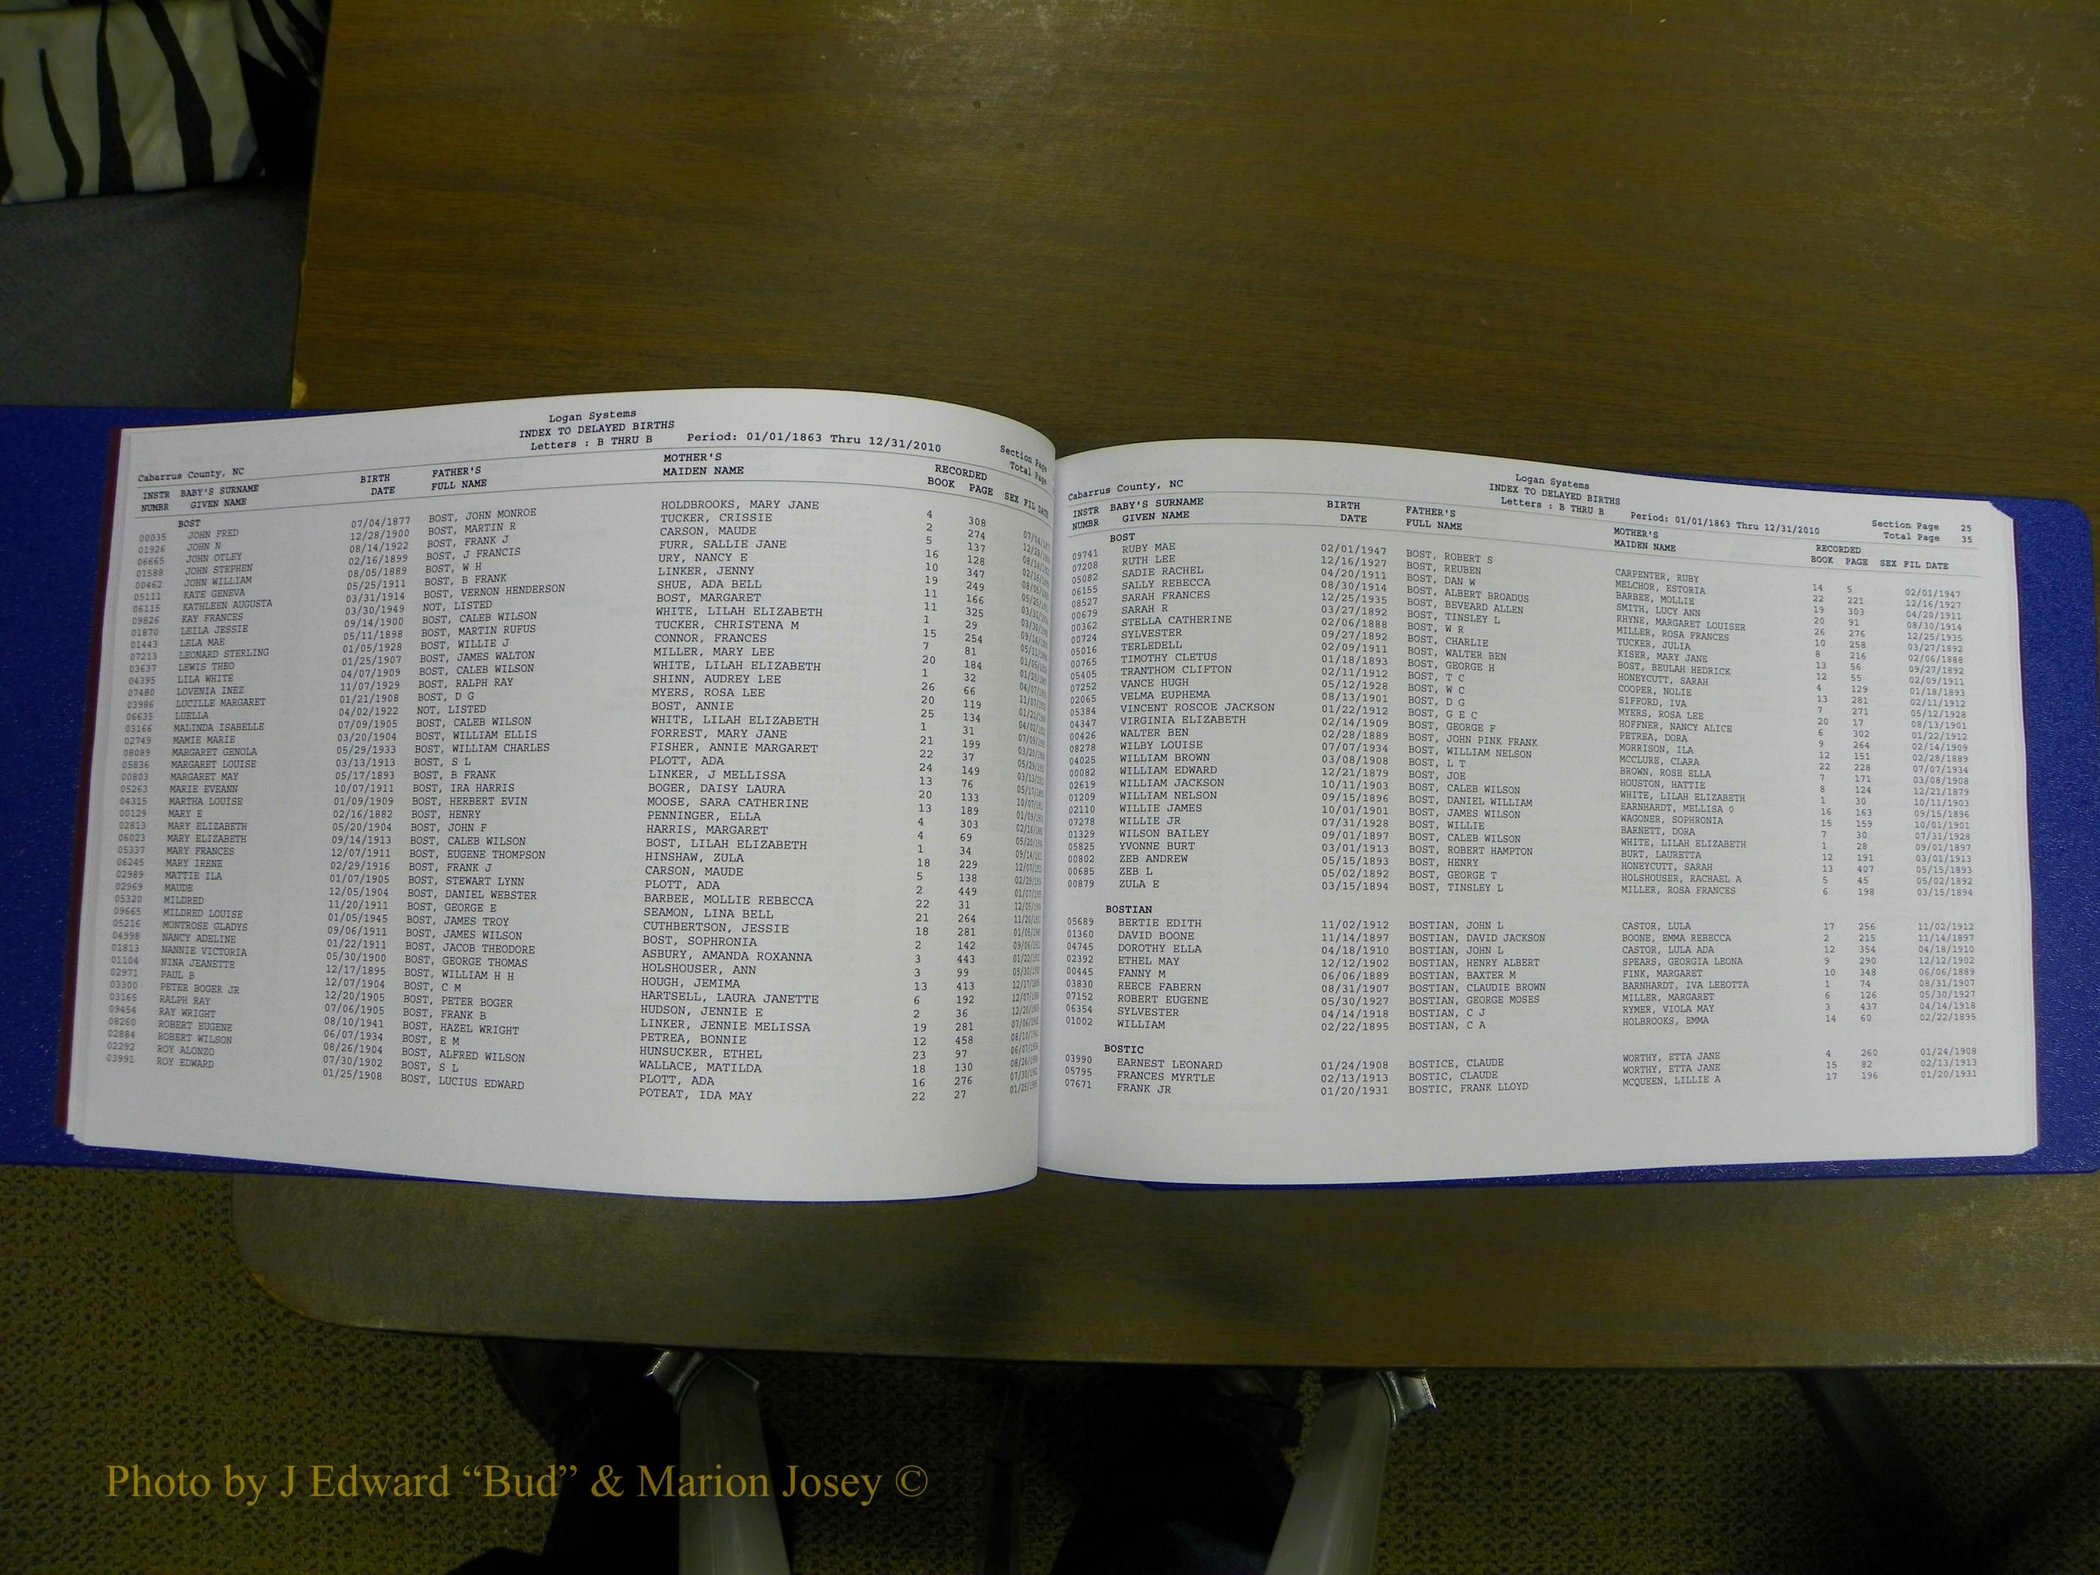 Logan Systems
INDEX TO DELAYED BIRTHS
Letters : B THRU B Period: 01/01/1863 Thru 12/31/2010
Section Page
Total Page
Cabarrus County, NC
INSTR BABY'S SURNAME BIRTH FATHER'S MOTHER'S RECORDED
NUMBR GIVEN NAME DATE FULL NAME MAIDEN NAME BOOK PAGE SEX FIL DATE
BOST
00035 JOHN FRED 07/04/1877 BOST, JOHN MONROE HOLDBROOKS, MARY JANE 4 308
01926 JOHN N 12/28/1900 BOST, MARTIN R TUCKER, CRISSIE 2 274
06665 JOHN OTLEY 08/14/1922 BOST, FRANK J CARSON, MAUDE 5 137
01588 JOHN STEPHEN 02/16/1899 BOST, J FRANCIS FURR, SALLIE JANE 16 128
00462 JOHN WILLIAM 08/05/1889 BOST, W H URY, NANCY E 10 347
05111 KATE GENEVA 05/25/1911 BOST, B FRANK LINKER, JENNY 19 249
06115 KATHLEEN AUGUSTA 03/31/1914 BOST, VERNON HENDERSON SHUE, ADA BELL 11 166
09826 KAY FRANCES 03/30/1949 NOT, LISTED BOST, MARGARET 11 325
01870 LEILA JESSIE 09/14/1900 BOST, CALEB WILSON WHITE, LILAH ELIZABETH 1 29
01443 LELA MAE 05/11/1898 BOST, MARTIN RUFUS TUCKER, CHRISTENA M 15 254
07213 LEONARD STERLING 01/05/1928 BOST, WILLIE J CONNOR, FRANCES 7 81
03637 LEWIS THEO 01/25/1907 BOST, JAMES WALTON MILLER, MARY LEE 20 184
04395 LILA WHITE 04/07/1909 BOST, CALEB WILSON WHITE, LILAH ELIZABETH 1 32
07480 LOVENIA INEZ 11/07/1929 BOST, RALPH RAY SHINN, AUDREY LEE 26 66
03986 LUCILLE MARGARET 01/21/1908 BOST, D G MYERS, ROSA LEE 20 119
06635 LUELLA 04/02/1922 NOT, LISTED BOST, ANNIE 25 134
03166 MALINDA ISABELLE 07/09/1905 BOST, CALEB WILSON WHITE, LILAH ELIZABETH 1 31
02749 MAMIE MARIE 03/20/1904 BOST, WILLIAM ELLIS FORREST, MARY JANE 21 199
08089 MARGARET GENOLA 05/29/1933 BOST, WILLIAM CHARLES FISHER, ANNIE MARGARET 22 37
05836 MARGARET LOUISE 03/13/1913 BOST, S L PLOTT, ADA 24 149
00803 MARGARET MAY 05/17/1893 BOST, B FRANK LINKER, J MELLISSA 13 76
05263 MARIE EVEANN 10/07/1911 BOST, IRA HARRIS BOGER, DAISY LAURA 20 133
04315 MARTHA LOUISE 01/09/1909 BOST, HERBERT EVIN MOOSE, SARA CATHERINE 13 189
00129 MARY E 02/16/1882 BOST, HENRY PENNINGER, ELLA 4 303
02813 MARY ELIZABETH 05/20/1904 BOST, JOHN F HARRIS, MARGARET 4 69
06023 MARY ELIZABETH 09/14/1913 BOST, CALEB WILSON BOST, LILAH ELIZABETH 1 34
05337 MARY FRANCES 12/07/1911 BOST, EUGENE THOMPSON HINSHAW, ZULA 18 229
06245 MARY IRENE 02/29/1916 BOST, FRANK J CARSON, MAUDE 5 138
02989 MATTIE ILA 01/07/1905 BOST, STEWART LYNN PLOTT, ADA 2 449
02969 MAUDE 12/05/1904 BOST, DANIEL WEBSTER BARBEE, MOLLIE REBECCA 22 31
05320 MILDRED 11/20/1911 BOST, GEORGE E SEAMON, LINA BELL 21 264
09665 MILDRED LOUISE 01/05/1945 BOST, JAMES TROY CUTHBERTSON, JESSIE 18 281
05216 MONTROSE GLADYS 09/06/1911 BOST, JAMES WILSON BOST, SOPHRONIA 2 142
04998 NANCY ADELINE 01/22/1911 BOST, JACOB THEODORE ASBURY, AMANDA ROXANNA 3 443
01813 NANNIE VICTORIA 05/30/1900 BOST, GEORGE THOMAS HOLSHOUSER, ANN 3 99
01104 NINA JEANETTE 12/17/1895 BOST, WILLIAM H H HOUGH, JEMIMA 13 413
02971 PAUL B 12/07/1904 BOST, C M HARTSELL, LAURA JANETTE 6 192
03300 PETER BOGER JR 12/20/1905 BOST, PETER BOGER HUDSON, JENNIE E 2 36
03165 RALPH RAY 07/06/1905 BOST, FRANK B LINKER, JENNIE MELISSA 19 281
09454 RAY WRIGHT 08/10/1941 BOST, HAZEL WRIGHT PETREA, BONNIE 12 458
08260 ROBERT EUGENE 06/07/1934 BOST, E M HUNSUCKER, ETHEL 23 97
02884 ROBERT WILSON 08/26/1904 BOST, ALFRED WILSON WALLACE, MATILDA 18 130
02292 ROY ALONZO 07/30/1902 BOST, S L PLOTT, ADA 16 276
03991 ROY EDWARD 01/25/1908 BOST, LUCIUS EDWARD POTEAT, IDA MAY 22 27
Logan Systems
INDEX TO DELAYED BIRTHS
Letters : B THRU B Period: 01/01/1863 Thru 12/31/2010
Section Page 25
Total Page 35
Cabarrus County, NC
INSTR BABY'S SURNAME BIRTH FATHER'S MOTHER'S RECORDED
NUMBR GIVEN NAME DATE FULL NAME MAIDEN NAME BOOK PAGE SEX FIL DATE
BOST
09741 RUBY MAE 02/01/1947 BOST, ROBERT S CARPENTER, RUBY 14 5 02/01/1947
07208 RUTH LEE 12/16/1927 BOST, REUBEN MELCHOR, ESTORIA 22 221 12/16/1927
05082 SADIE RACHEL 04/20/1911 BOST, DAN W BARBEE, MOLLIE 19 303 04/20/1911
06155 SALLY REBECCA 08/30/1914 BOST, ALBERT BROADUS SMITH, LUCY ANN 20 91 08/30/1914
08527 SARAH FRANCES 12/25/1935 BOST, BEVEARD ALLEN RHYNE, MARGARET LOUISER 26 276 12/25/1935
00679 SARAH R 03/27/1892 BOST, TINSLEY L MILLER, ROSA FRANCES 10 258 03/27/1892
00362 STELLA CATHERINE 02/06/1888 BOST, W R TUCKER, JULIA 8 216 02/06/1888
00724 SYLVESTER 09/27/1892 BOST, CHARLIE KISER, MARY JANE 13 56 09/27/1892
05016 TERLEDELL 02/09/1911 BOST, WALTER BEN BOST, BEULAH HEDRICK 12 55 02/09/1911
00765 TIMOTHY CLETUS 01/18/1893 BOST, GEORGE H HONEYCUTT, SARAH 4 129 01/18/1893
05405 TRANTHOM CLIFTON 02/11/1912 BOST, T C COOPER, NOLIE 13 281 02/11/1912
07252 VANCE HUGH 05/12/1928 BOST, W C SIFFORD, IVA 7 271 05/12/1928
02065 VELMA EUPHEMA 08/13/1901 BOST, D G MYERS, ROSA LEE 20 17 08/13/1901
05384 VINCENT ROSCOE JACKSON 01/22/1912 BOST, G E C HOFFNER, NANCY ALICE 6 302 01/22/1912
04347 VIRGINIA ELIZABETH 02/14/1909 BOST, GEORGE F PETREA, DORA 9 264 02/14/1909
00426 WALTER BEN 02/28/1889 BOST, JOHN PINK FRANK MORRISON, ILA 12 151 02/28/1889
08278 WILBY LOUISE 07/07/1934 BOST, WILLIAM NELSON MCCLURE, CLARA 22 228 07/07/1934
04025 WILLIAM BROWN 03/08/1908 BOST, L T BROWN, ROSE ELLA 7 171 03/08/1908
00082 WILLIAM EDWARD 12/21/1879 BOST, JOE HOUSTON, HATTIE 8 124 12/21/1879
02619 WILLIAM JACKSON 10/11/1903 BOST, CALEB WILSON WHITE, LILAH ELIZABETH 1 30 10/11/1903
01209 WILLIAM NELSON 09/15/1896 BOST, DANIEL WILLIAM EARNHARDT, MELLISA O 16 163 09/15/1896
02110 WILLIE JAMES 10/01/1901 BOST, JAMES WILSON WAGONER, SOPHRONIA 15 159 10/01/1901
07278 WILLIE JR 07/31/1928 BOST, WILLIE BARNETT, DORA 7 30 07/31/1928
01329 WILSON BAILEY 09/01/1897 BOST, CALEB WILSON WHITE, LILAH ELIZABETH 1 28 09/01/1897
05825 YVONNE BURT 03/01/1913 BOST, ROBERT HAMPTON BURT, LAURETTA 12 191 03/01/1913
00802 ZEB ANDREW 05/15/1893 BOST, HENRY HONEYCUTT, SARAH 13 407 05/15/1893
00685 ZEB L 05/02/1892 BOST, GEORGE T HOLSHOUSER, RACHAEL A 5 45 05/02/1892
00879 ZULA E 03/15/1894 BOST, TINSLEY L MILLER, ROSA FRANCES 6 198 03/15/1894
BOSTIAN
05689 BERTIE EDITH 11/02/1912 BOSTIAN, JOHN L CASTOR, LULA 17 256 11/02/1912
01360 DAVID BOONE 11/14/1897 BOSTIAN, DAVID JACKSON BOONE, EMMA REBECCA 2 215 11/14/1897
04745 DOROTHY ELLA 04/18/1910 BOSTIAN, JOHN L CASTOR, LULA ADA 12 354 04/18/1910
02392 ETHEL MAY 12/12/1902 BOSTIAN, HENRY ALBERT SPEARS, GEORGIA LEONA 9 290 12/12/1902
00445 FANNY M 06/06/1889 BOSTIAN, BAXTER M FINK, MARGARET 10 348 06/06/1889
03830 REECE FABERN 08/31/1907 BOSTIAN, CLAUDIE BROWN BARNHARDT, IVA LEEOTTA 1 74 08/31/1907
07152 ROBERT EUGENE 05/30/1927 BOSTIAN, GEORGE MOSES MILLER, MARGARET 6 126 05/30/1927
06354 SYLVESTER 04/14/1918 BOSTIAN, C J RYMER, VIOLA MAY 3 437 04/14/1918
01002 WILLIAM 02/22/1895 BOSTIAN, C A HOLBROOKS, EMMA 14 60 02/22/1895
BOSTIC
03990 EARNEST LEONARD 01/24/1908 BOSTICE, CLAUDE WORTHY, ETTA JANE 4 260 01/24/1908
05795 FRANCES MYRTLE 02/13/1913 BOSTIC, CLAUDE WORTHY, ETTA JANE 15 82 02/13/1913
07671 FRANK JR 01/20/1931 BOSTIC, FRANK LLOYD MCQUEEN, LILLIE A 17 196 01/20/1931
Photo by J Edward “Bud” & Marion Josey ©